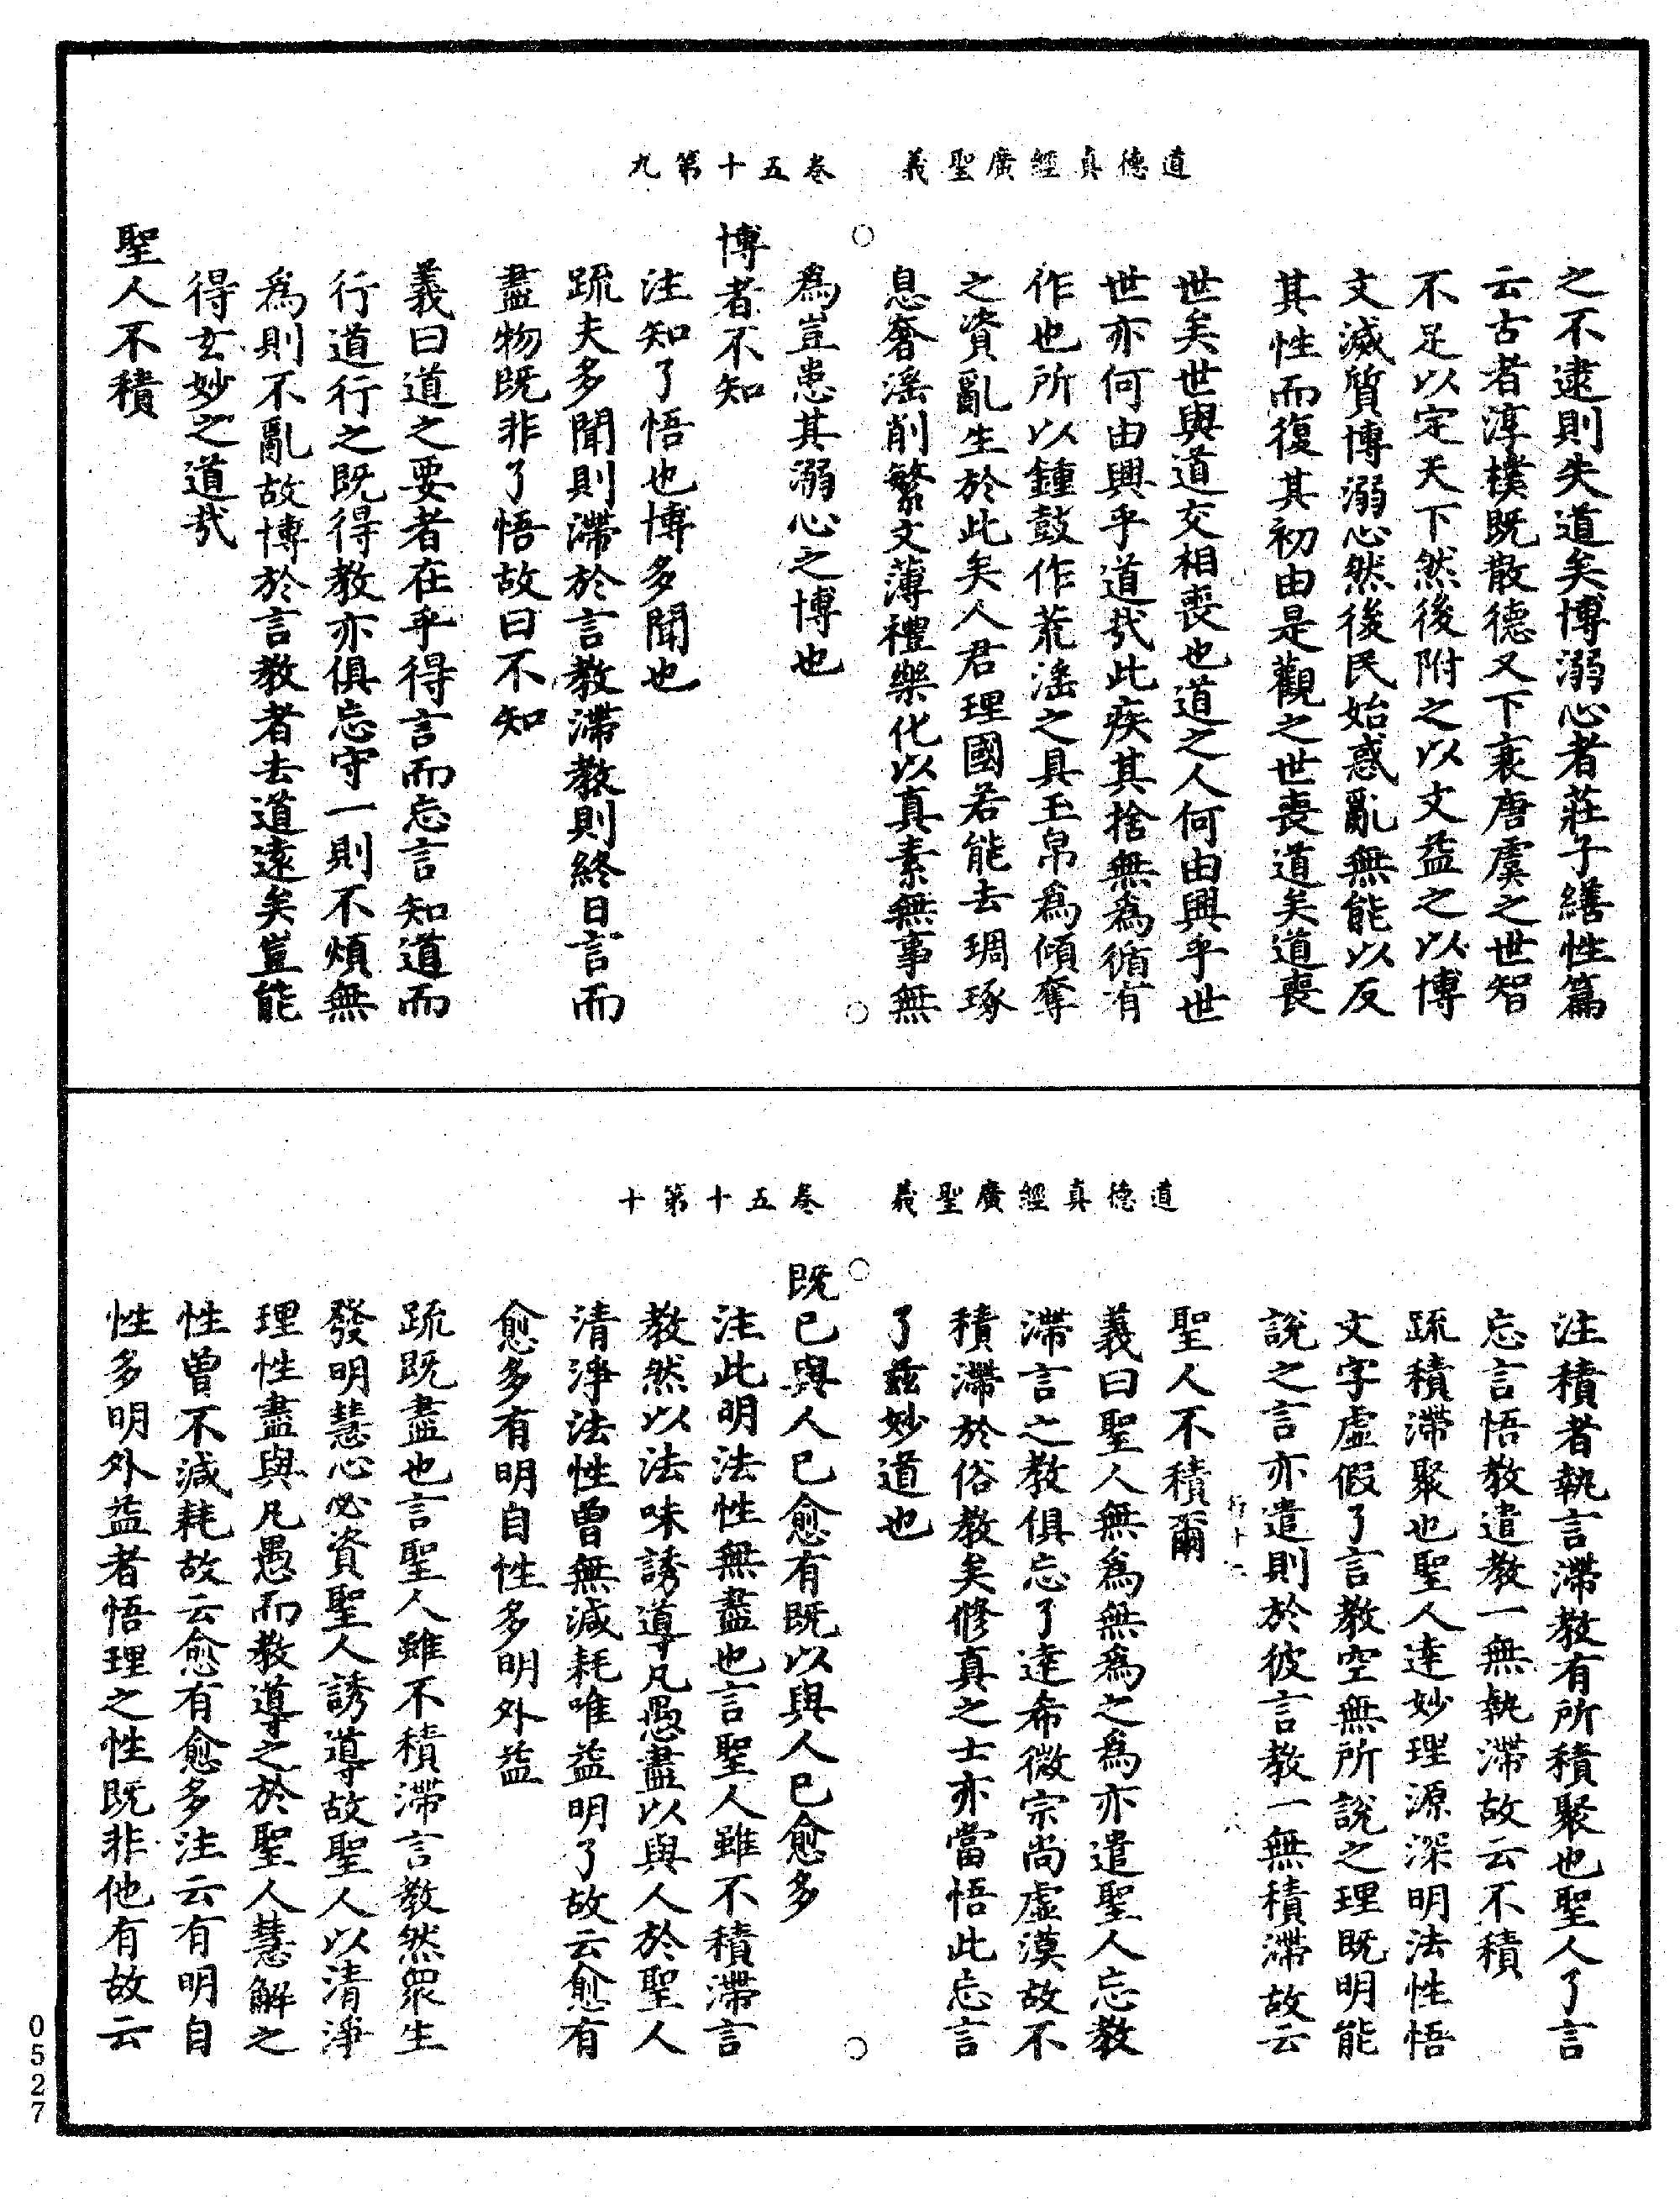 道德真經廣聖義　卷五十第九
之不逮則失道矣博溺心者莊子繕性篇
云古者淳樸既散德又下衰唐虞之世智
不足以定天下然後附之以文益之以博
文滅質博溺心然後民始惑亂無能以反
其性而復其初由是觀之世喪道矣道喪
世矣世與道交相喪也道之人何由興乎世
世亦何由興乎道哉此疾其捨無為循有
作也所以鍾鼓作荒滛之具玉帛為傾奪
之資亂生於此矣人君理國若能去琱琢
息奢滛削繁文薄禮樂化以真素無事無
為豈患其溺心之博也
博者不知
注知了悟也博多聞也
疏夫多聞則滯於言教滯教則終日言而
盡物既非了悟故曰不知
義曰道之要者在乎得言而忘言知道而
行道行之既得教亦俱忘守一則不煩無
為則不亂故博於言教者去道遠矣豈能
得玄妙之道哉
聖人不積
道德真經廣聖義　卷五十第十
注積者執言滯教有所積聚也聖人了言
忘言悟教遣教一無執滯故云不積
疏積滯聚也聖人達妙理源深明法性悟
文字虛假了言教空無所說之理既明能
說之言亦遣則於彼言教一無積滯故云
聖人不積爾
義曰聖人無為無為之為亦遣聖人忘教
滯言之教俱忘了達希微宗尚虛漠故不
積滯於俗教矣修真之士亦當悟此忘言
了兹妙道也
既已與人已愈有既以與人已愈多
注此明法性無盡也言聖人雖不積滯言
教然以法味誘導凡愚盡以與人於聖人
清淨法性曾無減耗唯益明了故云愈有
愈多有明自性多明外益
疏既盡也言聖人雖不積滯言教然眾生
發明慧心必資聖人誘導故聖人以清淨
理性盡與凡愚而教導之於聖人慧解之
性曾不減耗故云愈有愈多注云有明自
性多明外益者悟理之性既非他有故云
0527